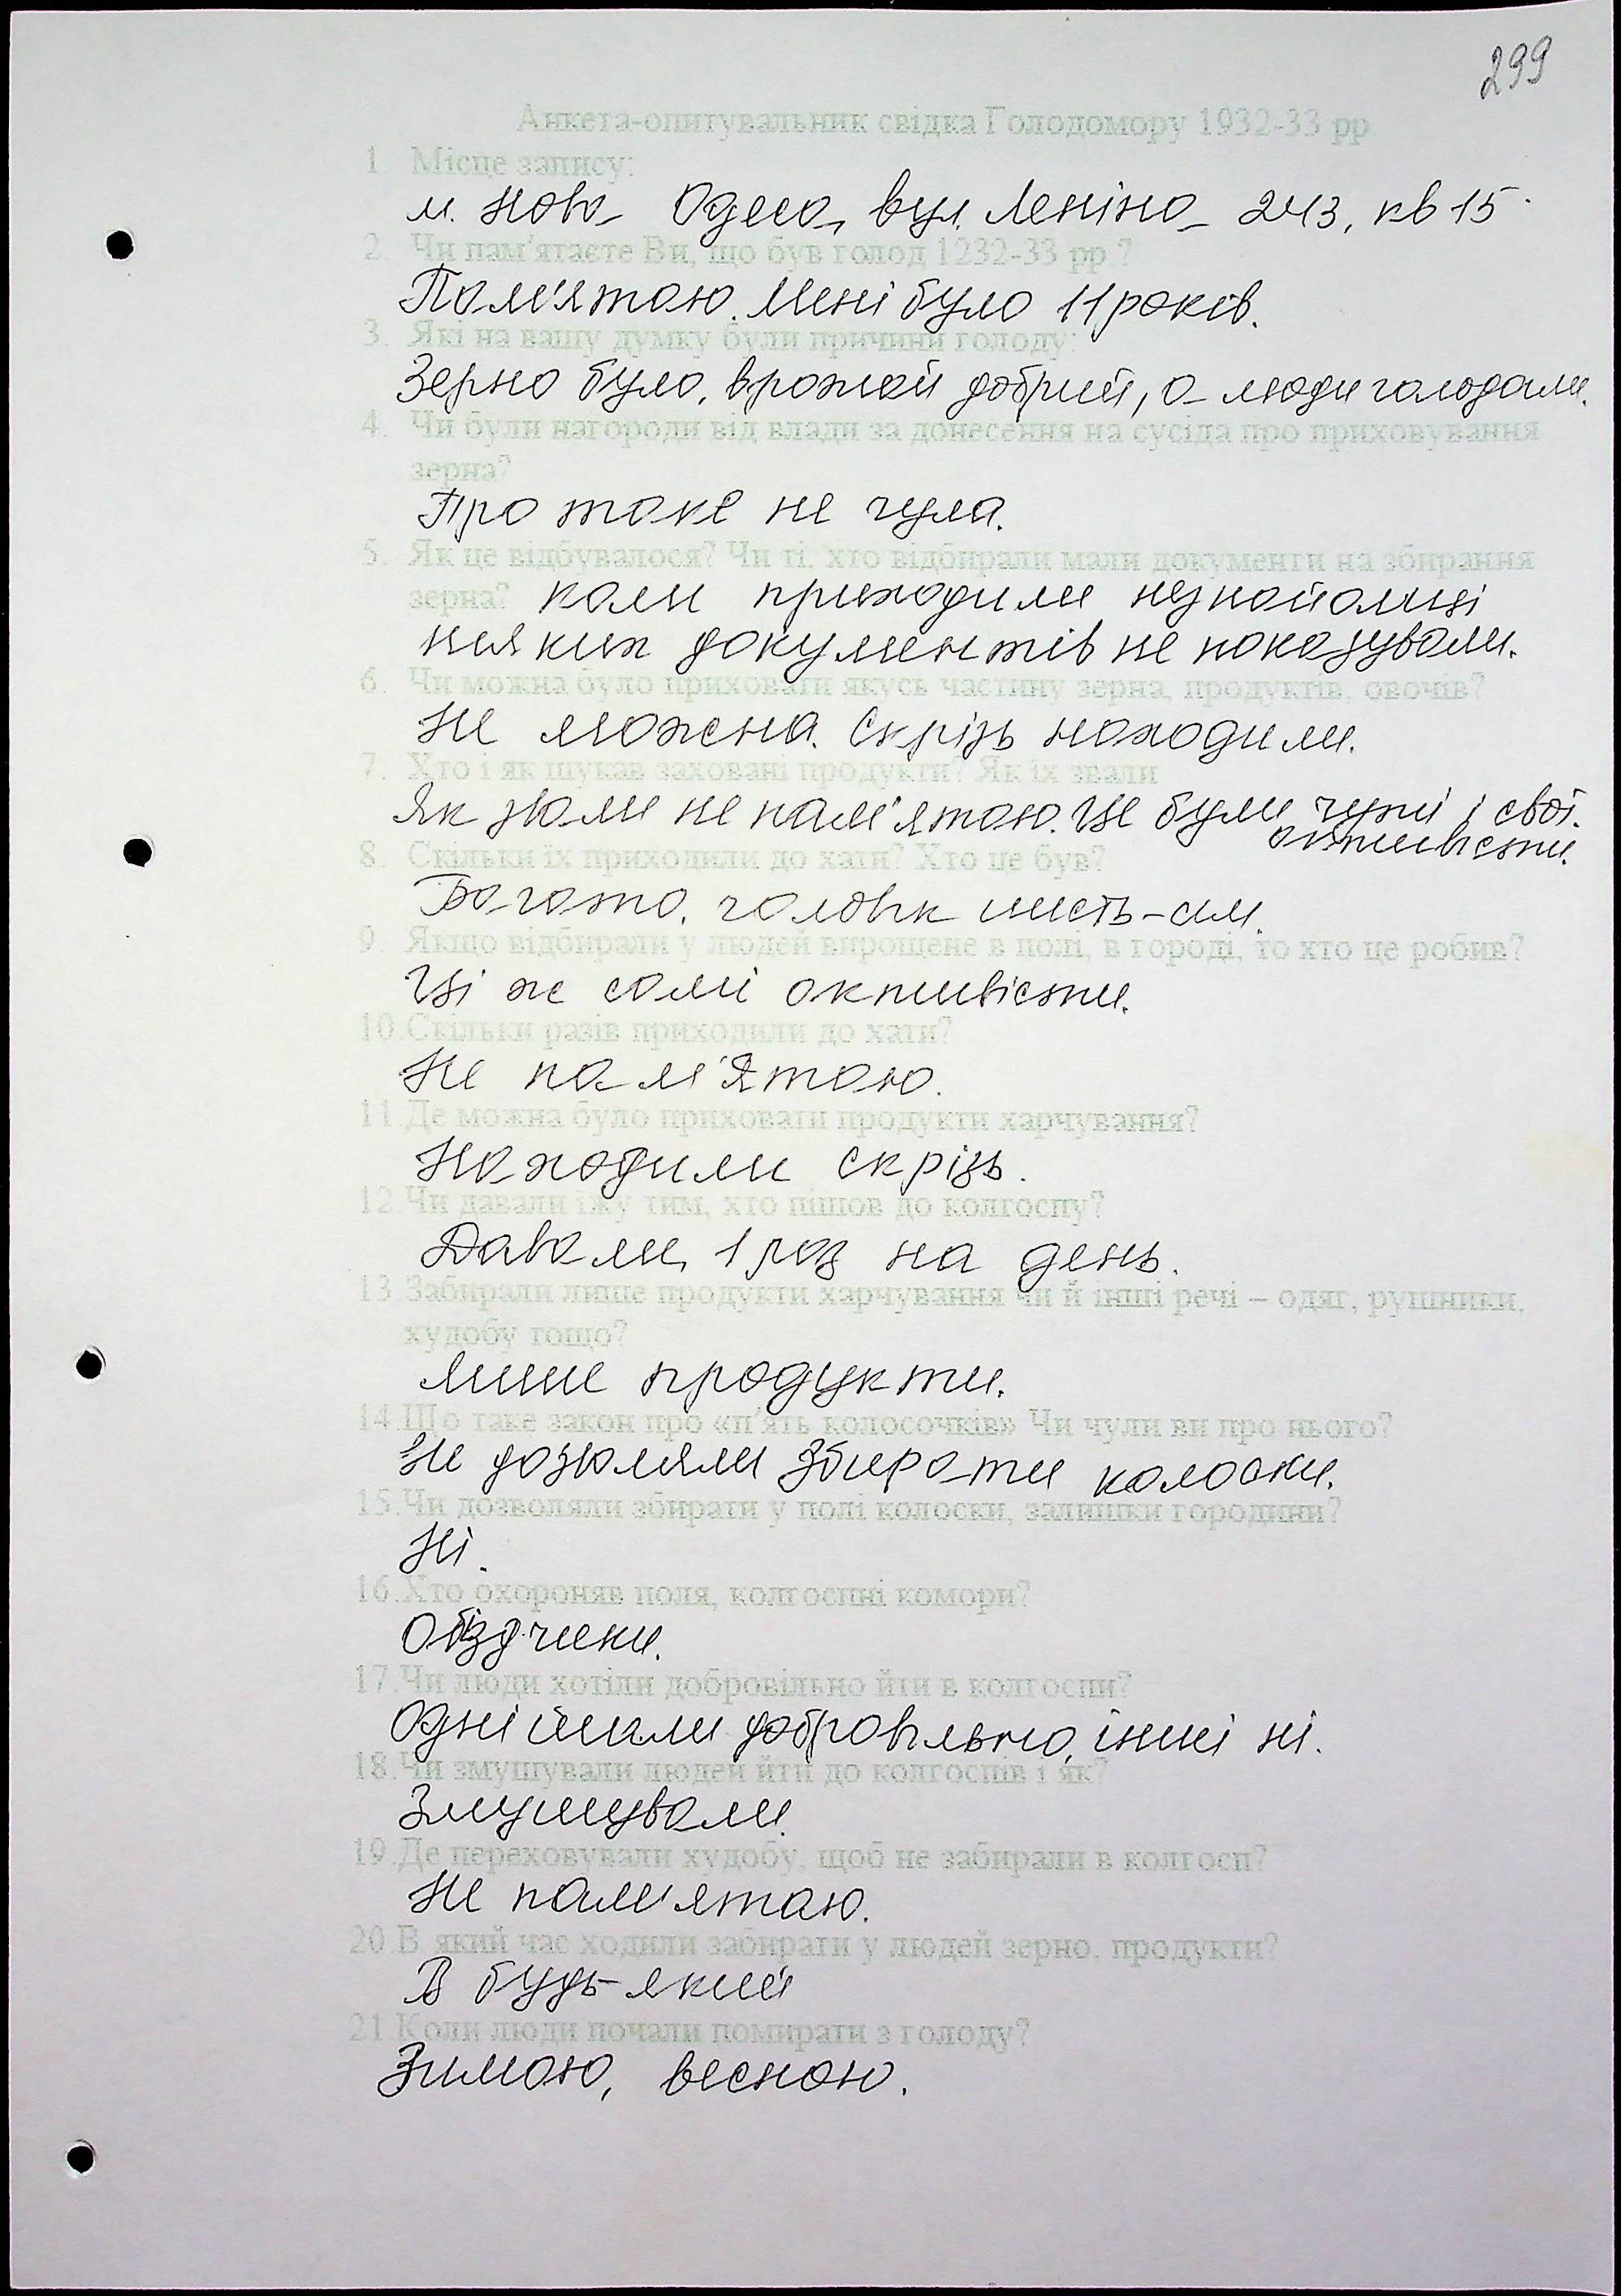 299
Анкета-опитувальник свідка Голодомору 1932-33 рр
1. Місце запису:
м. Нова Одеса, вул. Леніна 243, кв 15.
2. Чи пам'ятаєте Ви, що був голод 1232-33 рр.?
Пам'ятаю. Мені було 11 років.
3. Які на вашу думку були причини голоду:
Зерно було, врожай добрий, а люди голодали.
4. Чи були нагороди від влади за донесення на сусіда про приховування
зерна?
Про таке не чула.
5. Як це відбувалося? Чи ті, хто відбирали мали документи на збирання
зерна? коли приходили незнайомці
ніяких документів не показували.
6. Чи можна було приховати якусь частину зерна, продуктів, овочів?
Не можна. Скрізь находили.
7. Хто і як шукав заховані продукти? Як їх звали
Як звали не пам'ятаю. Це були чужі і свої.
активісти.
8. Скільки їх приходили до хати? Хто це був?
Багато, чоловік шість-сім.
9. Якщо відбирали у людей вирощене в полі, в городі, то хто це робив?
Ці ж самі активісти.
10.Скільки разів приходили до хати?
Не пам'ятаю.
11.Де можна було приховати продукти харчування?
Находили скрізь.
12.Чи давали їжу тим, хто пішов до колгоспу?
Давали, 1 раз на день.
13.Забирали лише продукти харчування чи й інші речі – одяг, рушники,
худобу тощо?
Лише продукти.
14.Що таке закон про «п'ять колосочків» Чи чули ви про нього?
Не дозволяли збирати колоски.
15.Чи дозволяли збирати у полі колоски, залишки городини?
Ні.
16.Хто охороняв поля, колгоспні комори?
Обїздчики.
17.Чи люди хотіли добровільно йти в колгоспи?
Одні йшли добровільно, інші ні.
18.Чи змушували людей йти до колгоспів і як?
Змушували.
19.Де переховували худобу, щоб не забирали в колгосп?
Не пам'ятаю.
20.В який час ходили забирати у людей зерно, продукти?
В будь-який
21.Коли люди почали помирати з голоду?
Зимою, весною.